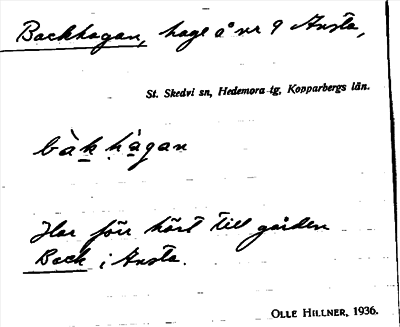 Backhagan, hage å nr 9 Ansta,
St. Skedvi sn, Hedemora tg, Kopparbergs län.
bàk hàgan
Har förr hört till gården
Back i Ansta.
OLLE HILLNER, 1936.